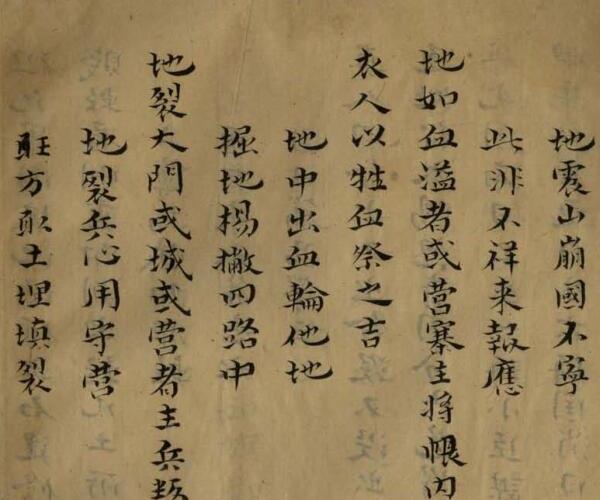 地震山崩國不寧
此非不祥来報應
地如血溢者或营寨主将帳内
衣人以牲血祭之吉
地中出血輪他地
掘地楊撇四路中
地裂大門或城或营者主兵叛
地裂兵心用守营
旺方取土埋填裂